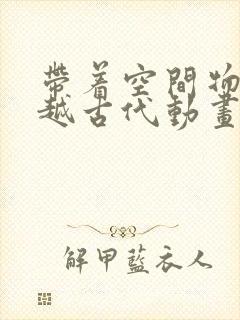 帶着空間物
越古代動畫
解甲藍衣人